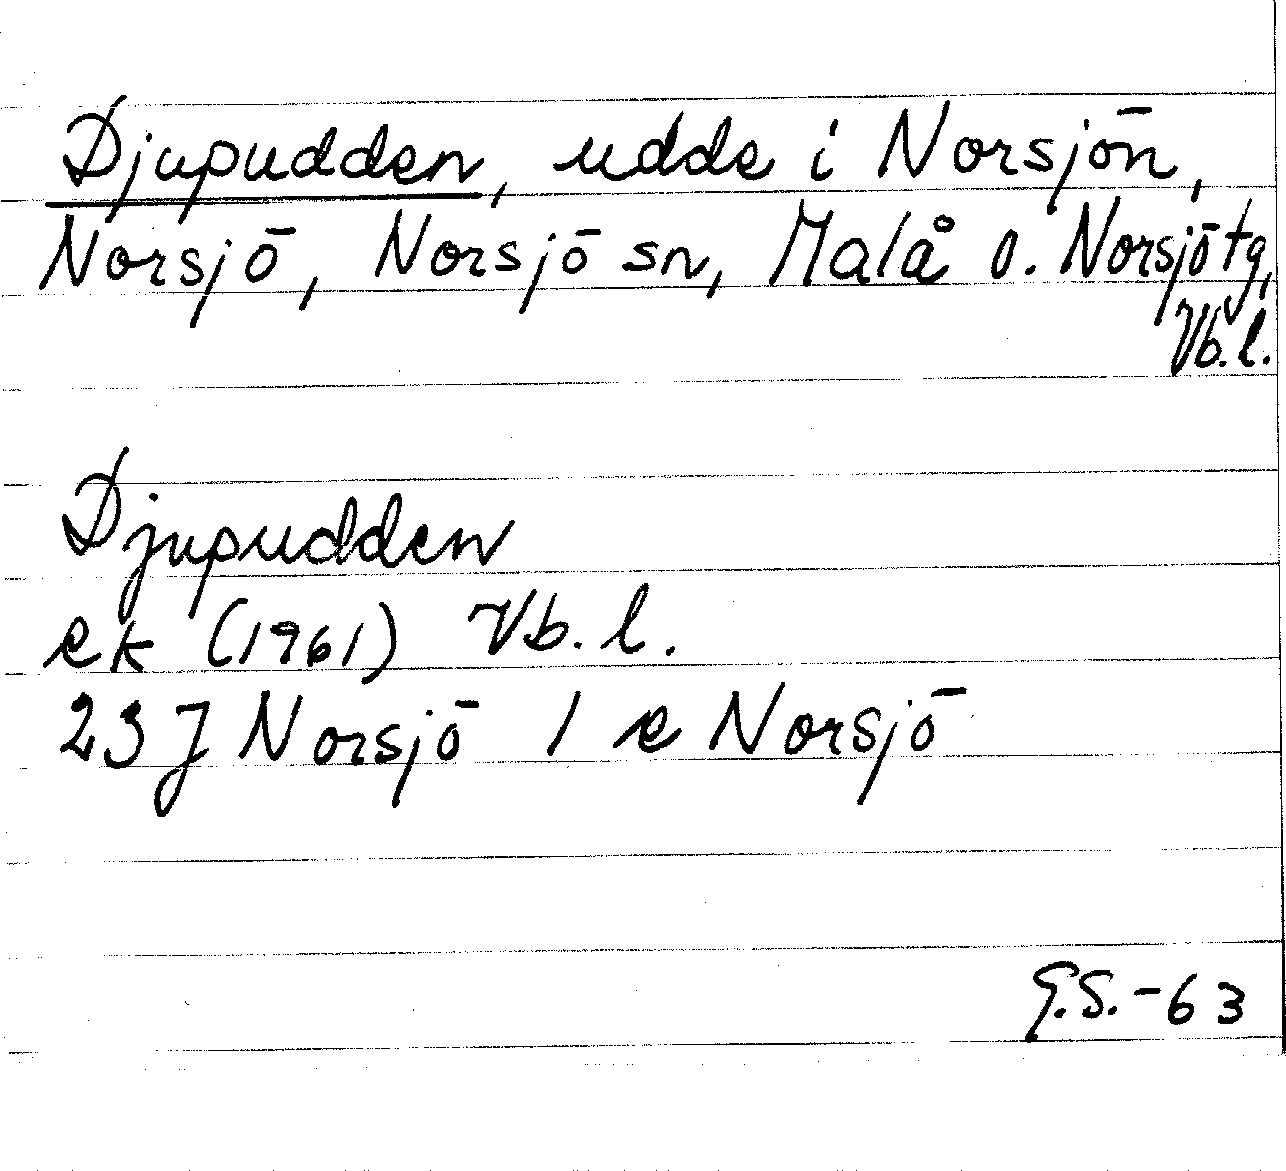 Djupudden, udde i Norsjön,
Norsjö, Norsjö sn, Malå o. Norsjö tg,
Vb.l.
Djupudden
ek (1961) Vb. l.
23J Norsjö 1 e Norsjö
G.S.-63